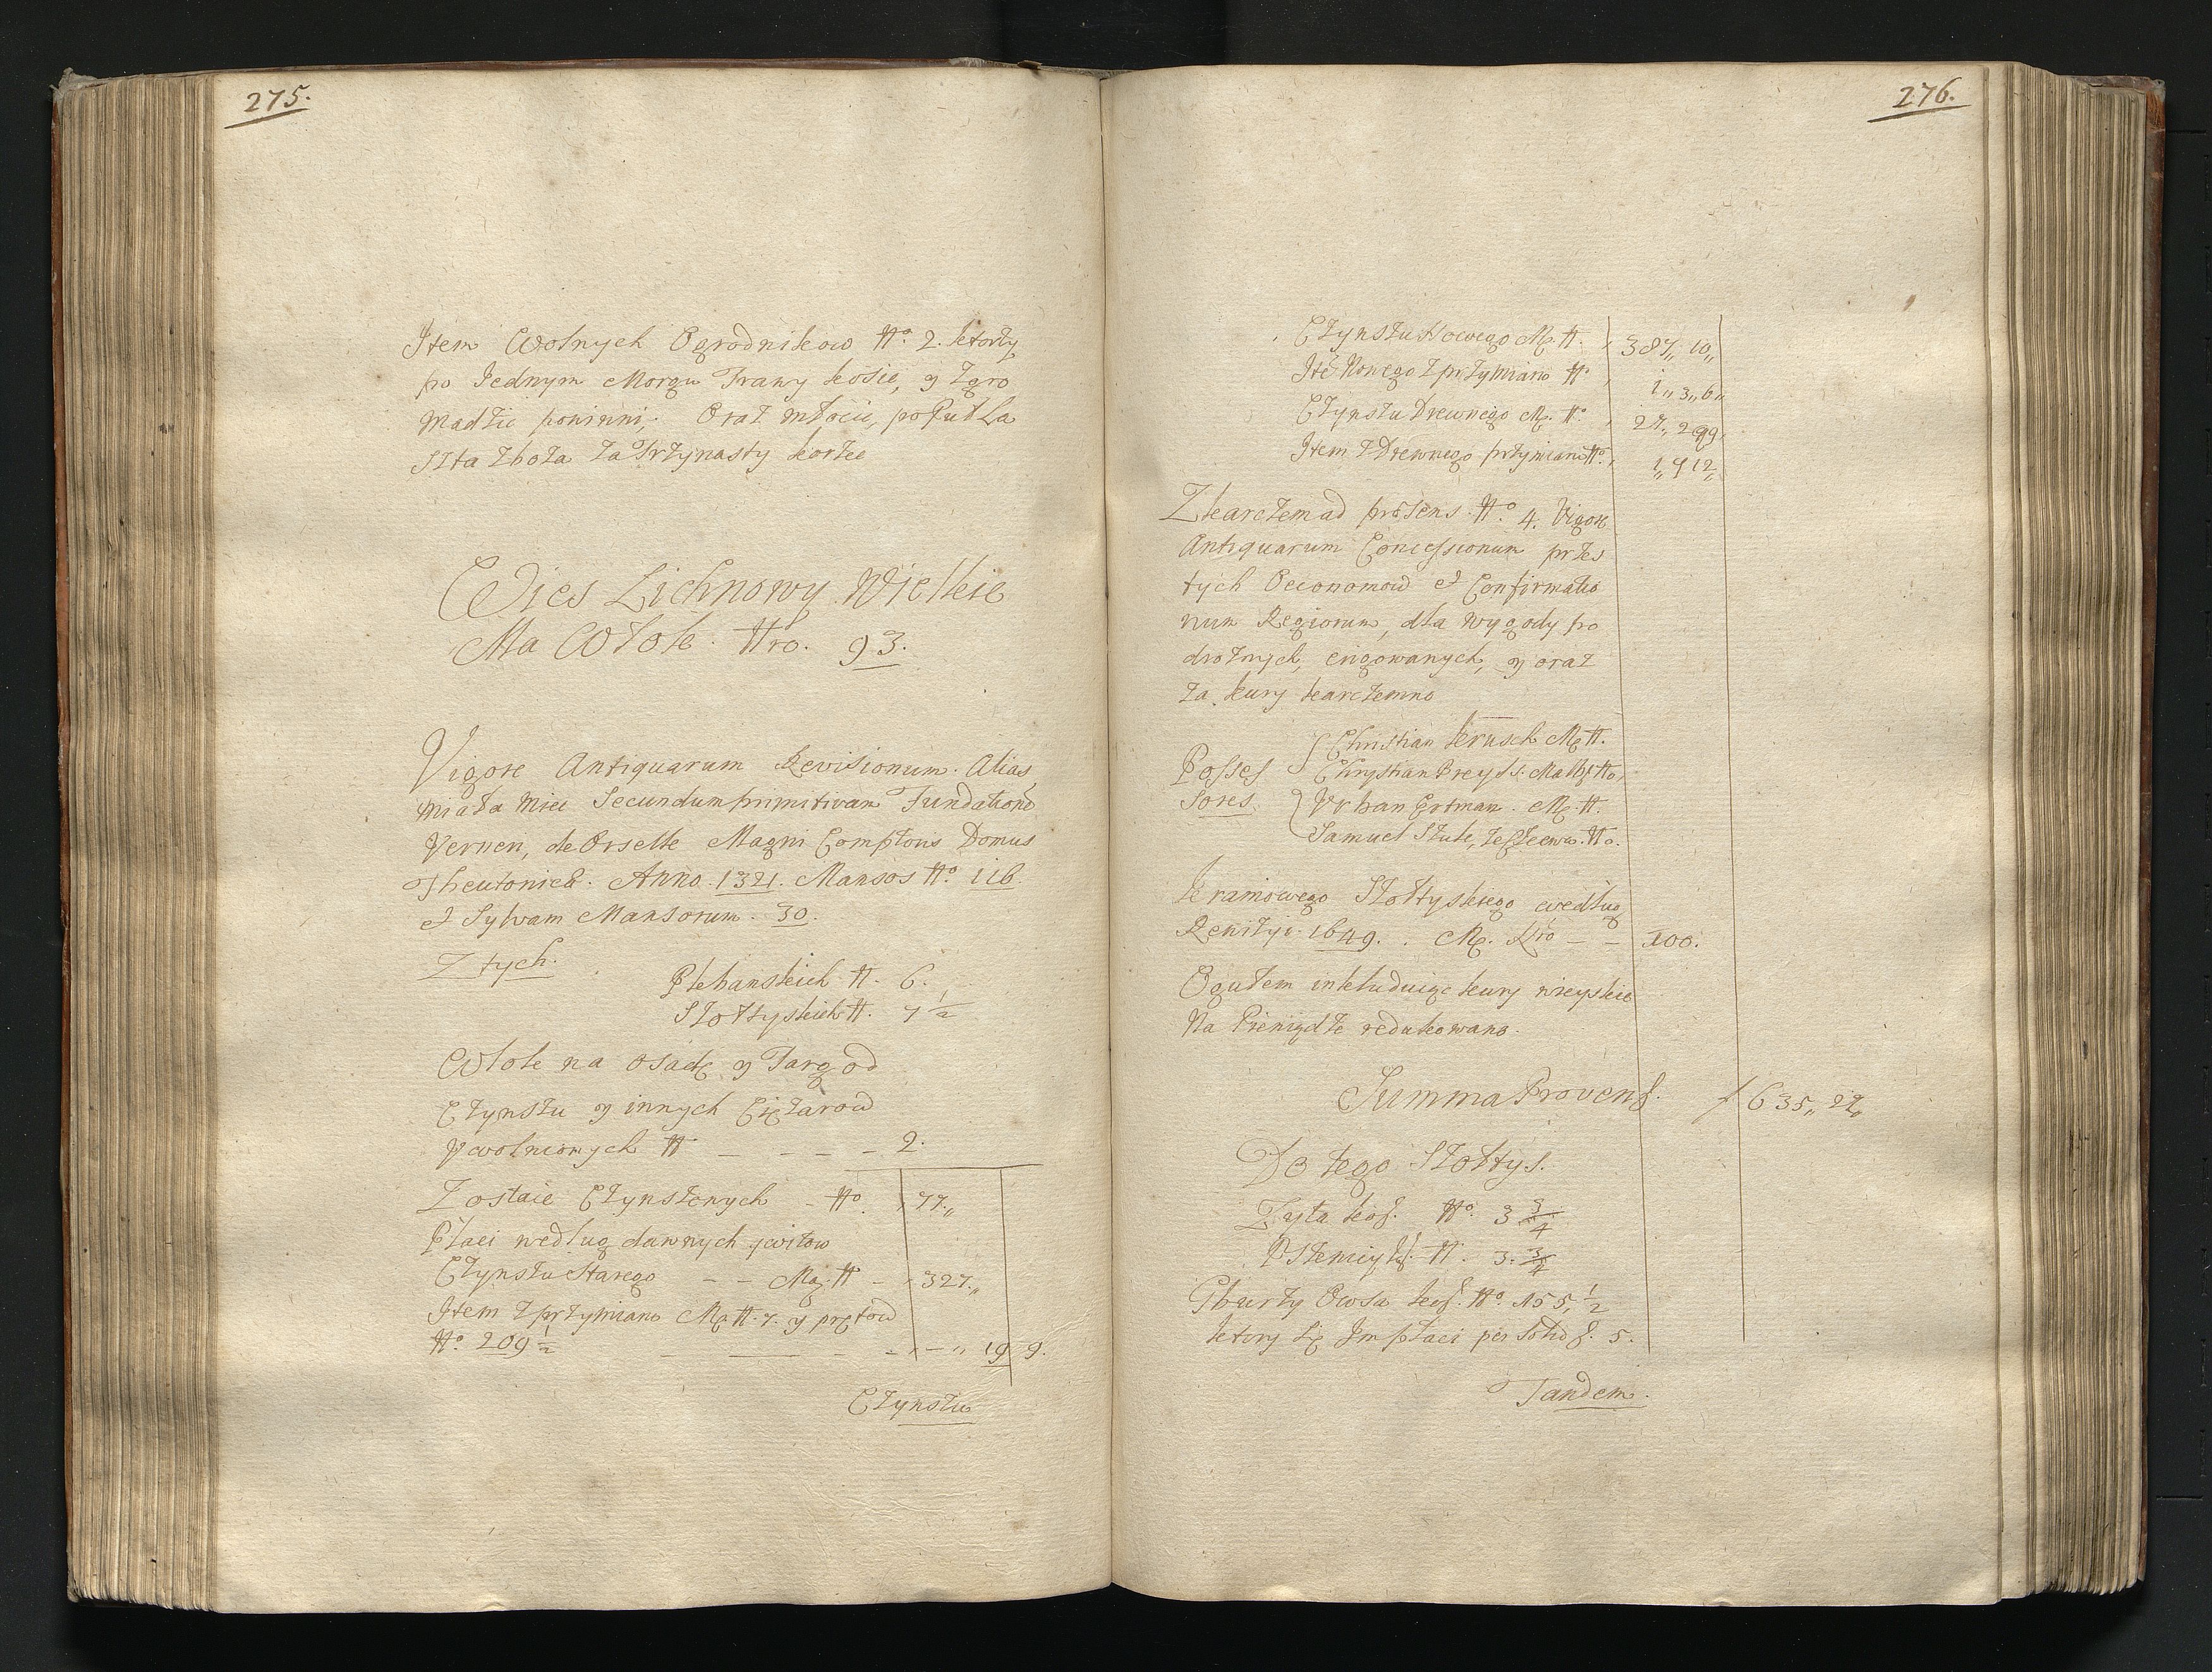 275.
Item Wolnych Ogrodnikow No. 2. ktorzy
po Jednym Morgu Trawy kosic, y zgro
madzic powinni; Oraz młocic, po Put La
szta zboza za Trzynasty korzec
Wies Lichnowy Wielkie
Ma Włok. Nro. 93.
Vigore Antiquarum Revisionum. Alias
miała miec Secundum primitivam Fundatione
Verneri, de Orselle Magni Comptoris Domus
Theutonicæ. Anno. 1321. Mansos No. 116
et Sylvam Mansorum. 30.
Z tych.
Plebanskich N. 6.
Szołtyskich N. 7 1/2
Włok na osadę y Targ od
Czynszu y innych Cięzarow
Vwolnionych N. — — — — 2.
Zostaie Czynszowych — No. 77.,,
Płaci według dawnych qwitow
Czynszu Starego — — Mag. N — 327.,,
Item z przymiaru Mg N. 7. y prętow
No. 209 1/2 — — — — — ,, 19 9.
Czynszu
276.
Czynszu Nowego Mg N. 387,, 10,,
Ite Nowego z przymiaru N 1,, 3,, 6,,
Czynszu Drewnego Mg. No
Item z Drewnego przymiaru No.
Z karczem ad præsens No. 4. Vigore
Antiquarum Concessionum przes
tych Oeconomow et Confirmatio
num Regiorum, dla wygody po
droznych, erigowanych, y oraz
za kury karczemno
Christian Krusch Mg N.
Posses Chrystian Preyss. Malbr. No.
sores. Vrban Ertman. Mg. N.
Samuel Stube, No.
Kramowego Szołtyskiego według
Rewizyi 1649. Mg. Nro — — 100.
Ogułem inkluduiąc kury wieyskie
Na Pieniądze redukowano.
Summa Provent. f 635,, 22,,
Do tego Szołtys.
Zyta kor. No. 3 3/4
Pszenicy kor. N. 3. 3/4
Gburzy Owsa kor. No. 155, 1/2
ktory się Im płaci per Solid g. 5.
Tandem.